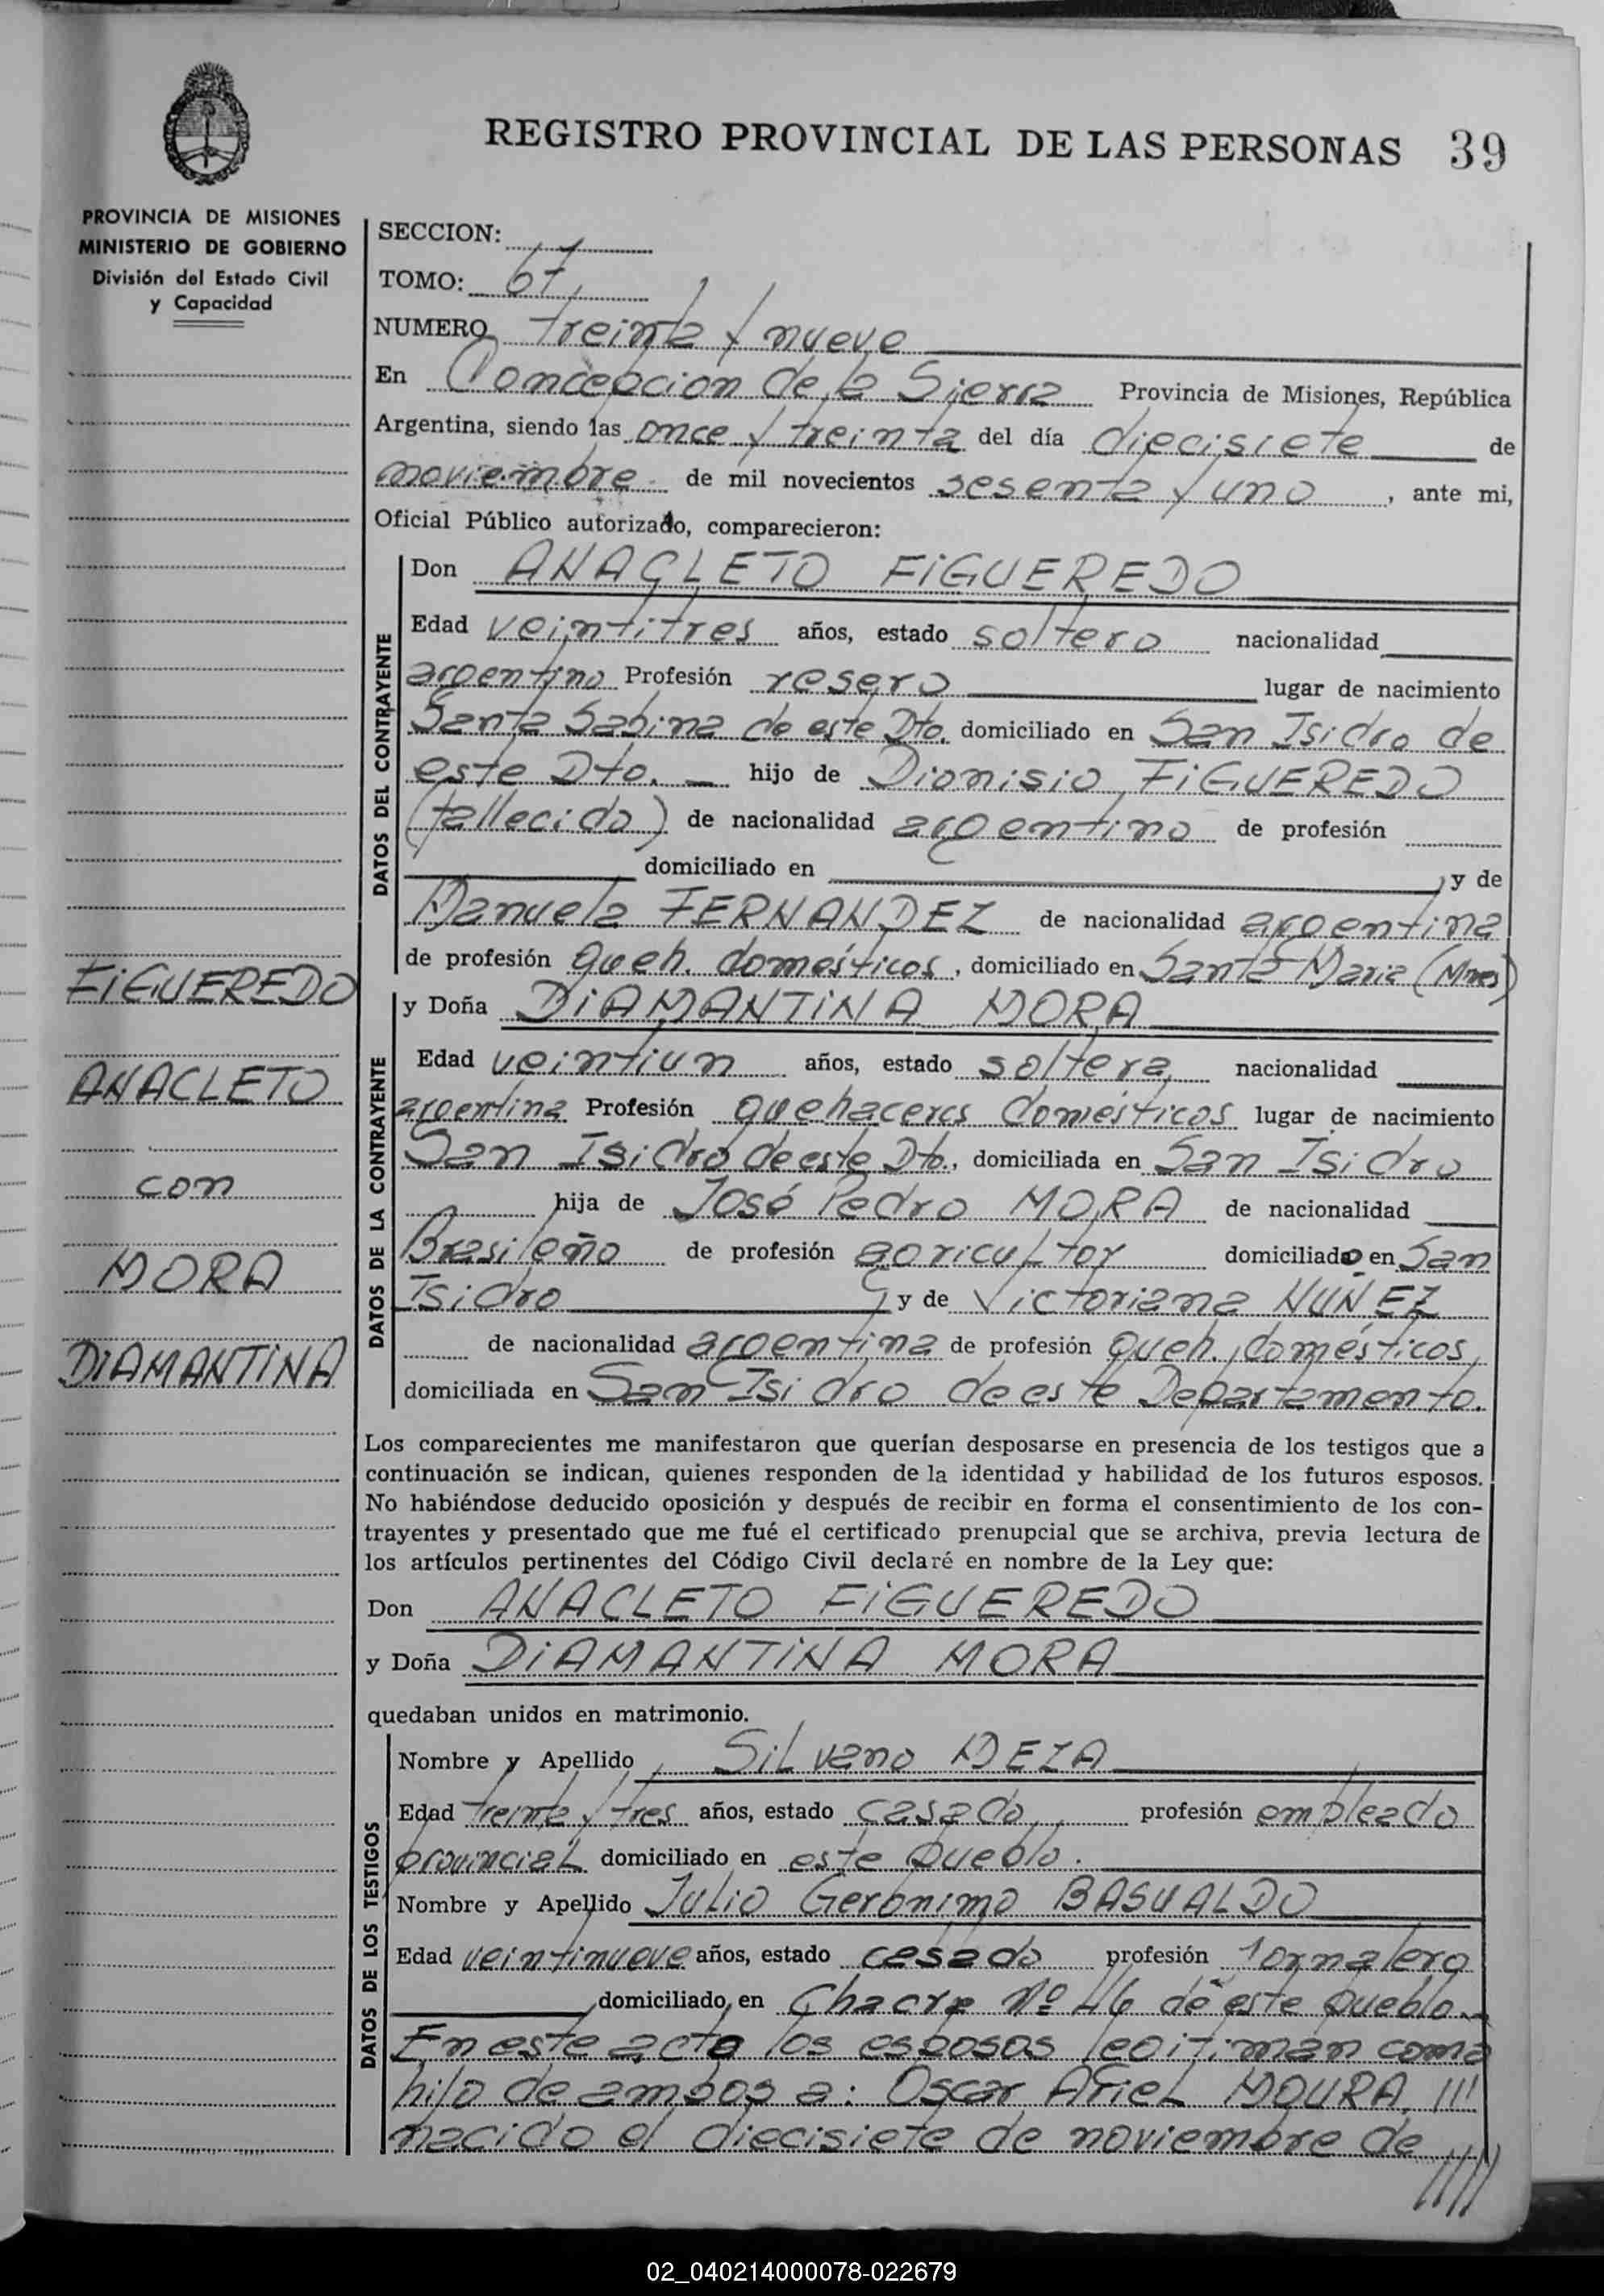 REGISTRO PROVINCIAL DE LAS PERSONAS 39
PROVINCIA DE MISIONES
MINISTERIO DE GOBIERNO
División del Estado Civil
y Capacidad
SECCION:
TOMO: 67
NUMERO treinta y nueve
En Concepción de la Sierra Provincia de Misiones, República
Argentina, siendo las once y treinta del día diecisiete de
noviembre de mil novecientos sesenta y uno, ante mi,
Oficial Público autorizado, comparecieron:
DATOS DEL CONTRAYENTE
Don ANACLETO FiGUEREDO
Edad veintitres años, estado soltero nacionalidad
argentino Profesión resero lugar de nacimiento
Santa Sabina de este Dto. domiciliado en San Isidro de
este Dto. hijo de Dionisio FiGUEREDO
(fallecido) de nacionalidad argentino de profesión
domiciliado en y de
Manuela FERNANDEZ de nacionalidad argentina
de profesión queh. domésticos, domiciliado en Santa Maria (Mnes)
DATOS DE LA CONTRAYENTE
y Doña DiAMANTiNA MORA
Edad veintiun años, estado soltera nacionalidad
argentina Profesión quehaceres domésticos lugar de nacimiento
San Isidro de este Dto., domiciliada en San Isidro
hija de José Pedro MORA de nacionalidad
Brasileño de profesión agricultor domiciliado en San
Isidro y de Victoriana NUÑEZ
de nacionalidad argentina de profesión queh. domésticos,
domiciliada en San Isidro de este Departamento.
FiGUEREDO
ANACLETO
con
MORA
DiAMANTiNA
Los comparecientes me manifestaron que querían desposarse en presencia de los testigos que a
continuación se indican, quienes responden de la identidad y habilidad de los futuros esposos.
No habiéndose deducido oposición y después de recibir en forma el consentimiento de los con-
trayentes y presentado que me fué el certificado prenupcial que se archiva, previa lectura de
los artículos pertinentes del Código Civil declaré en nombre de la Ley que:
Don ANACLETO FiGUEREDO
y Doña DiAMANTiNA MORA
quedaban unidos en matrimonio.
DATOS DE LOS TESTIGOS
Nombre y Apellido Silvano MEZA
Edad treinta y tres años, estado casado profesión empleado
provincial domiciliado en este pueblo.
Nombre y Apellido Julio Gerónimo BASUALDO
Edad veintinueve años, estado casado profesión Jornalero
domiciliado en Chacra Nº 46 de este pueblo.
En este acto los esposos legitiman como
hijo de ambos a: Oscar Ariel MOURA, ///
nacido el diecisiete de noviembre de
////
02_040214000078-022679